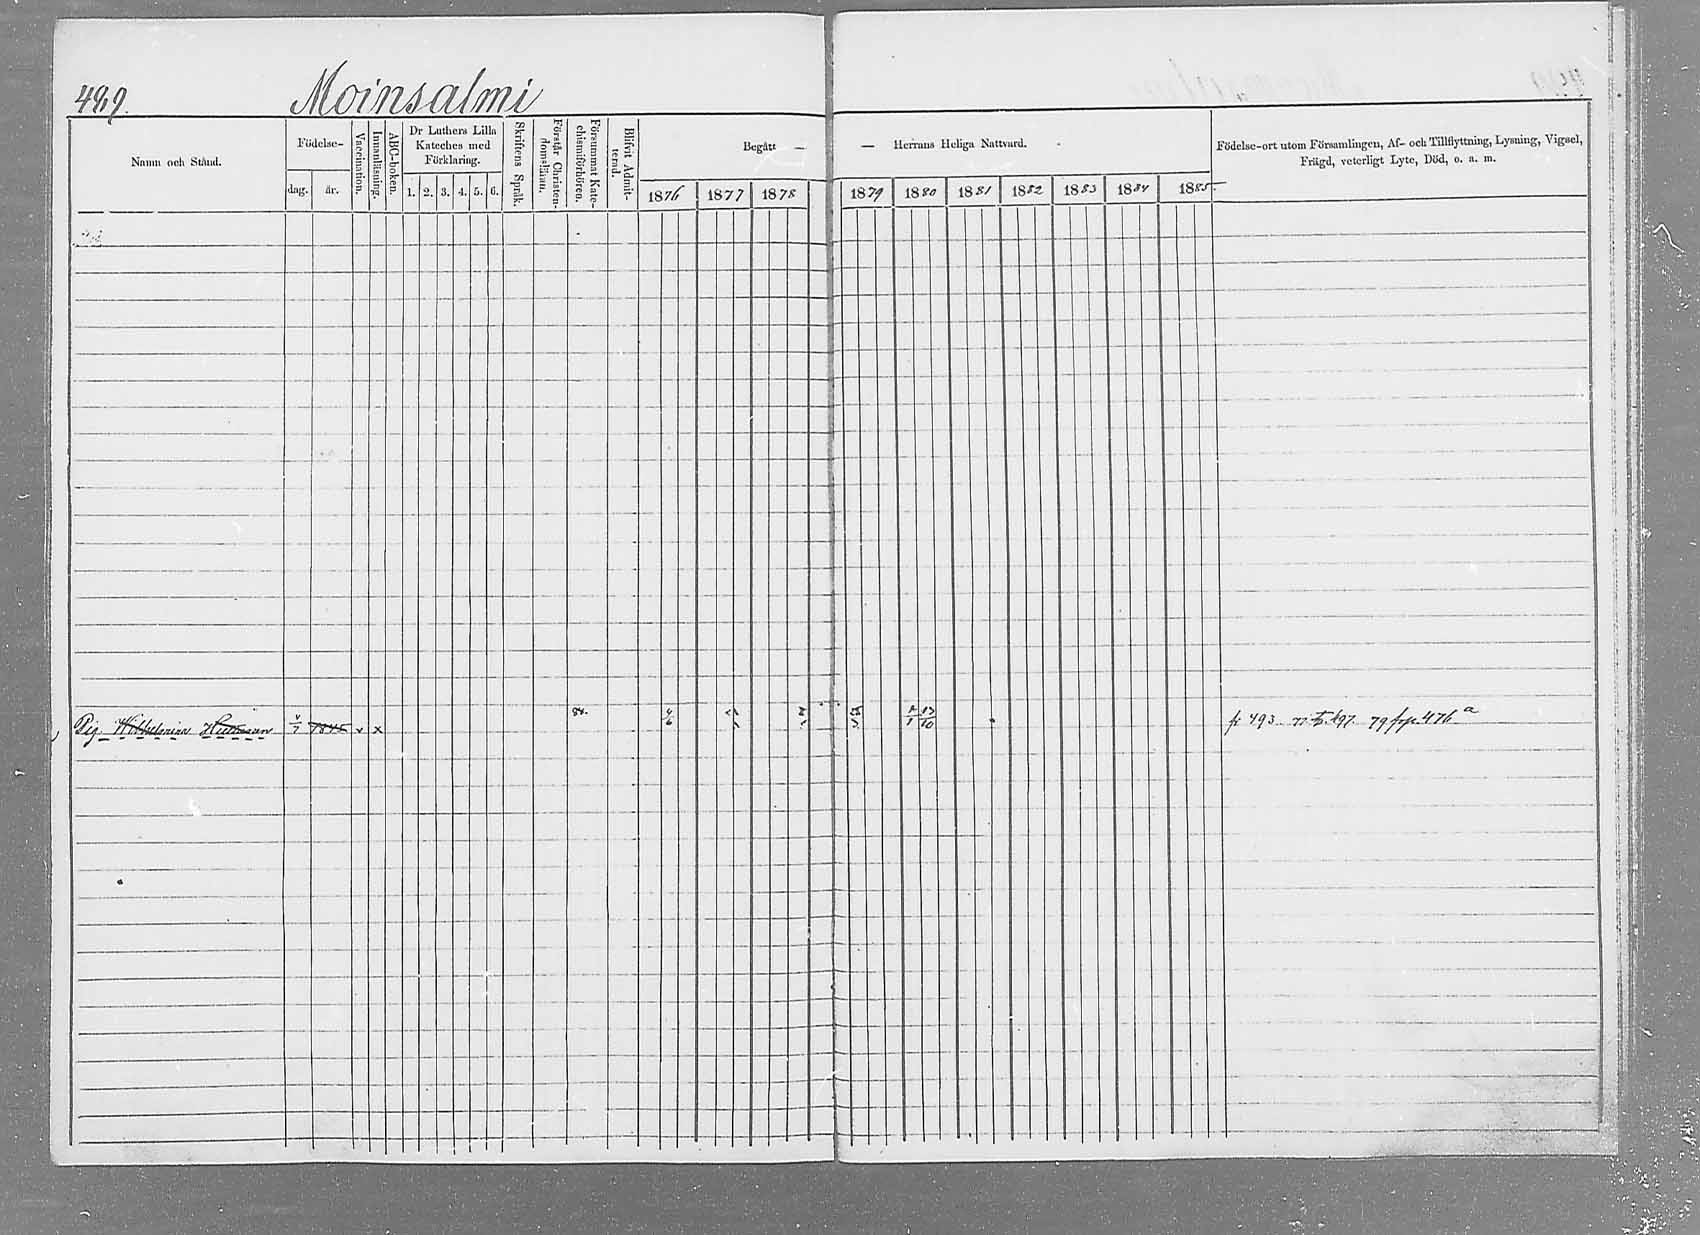 499.
Moinsalmi
Namn och Stånd.
Födelse-
dag. år.
Vaccination.
Innanläsning.
ABC-boken.
Dr Luthers Lilla
Kateches med
Förklaring.
1. 2. 3. 4. 5. 6.
Skriftens Språk.
Förstår Christen-
domsläran.
Försummat Kate-
chismiförhören.
Blifvit Admit-
terad.
Begått —
1876 1877 1878
— Herrans Heliga Nattvard.
1879 1880 1881 1882 1883 1884 1885
Födelse-ort utom Församlingen, Af- och Tillflyttning, Lysning, Vigsel,
Frägd, veterligt Lyte, Död, o. a. m.
Pig. Wilhelmina 1845 x x 84. 4/6 13/10 fr 493 476 a